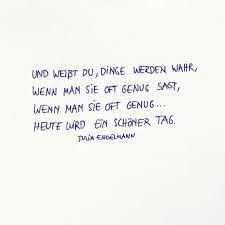 UND WEIßT DU, DINGE WERDEN WAHR,
WENN MAN SIE OFT GENUG SAGT,
WENN MAN SIE OFT GENUG...
HEUTE WIRD EIN SCHÖNER TAG.
JULIA ENGELMANN